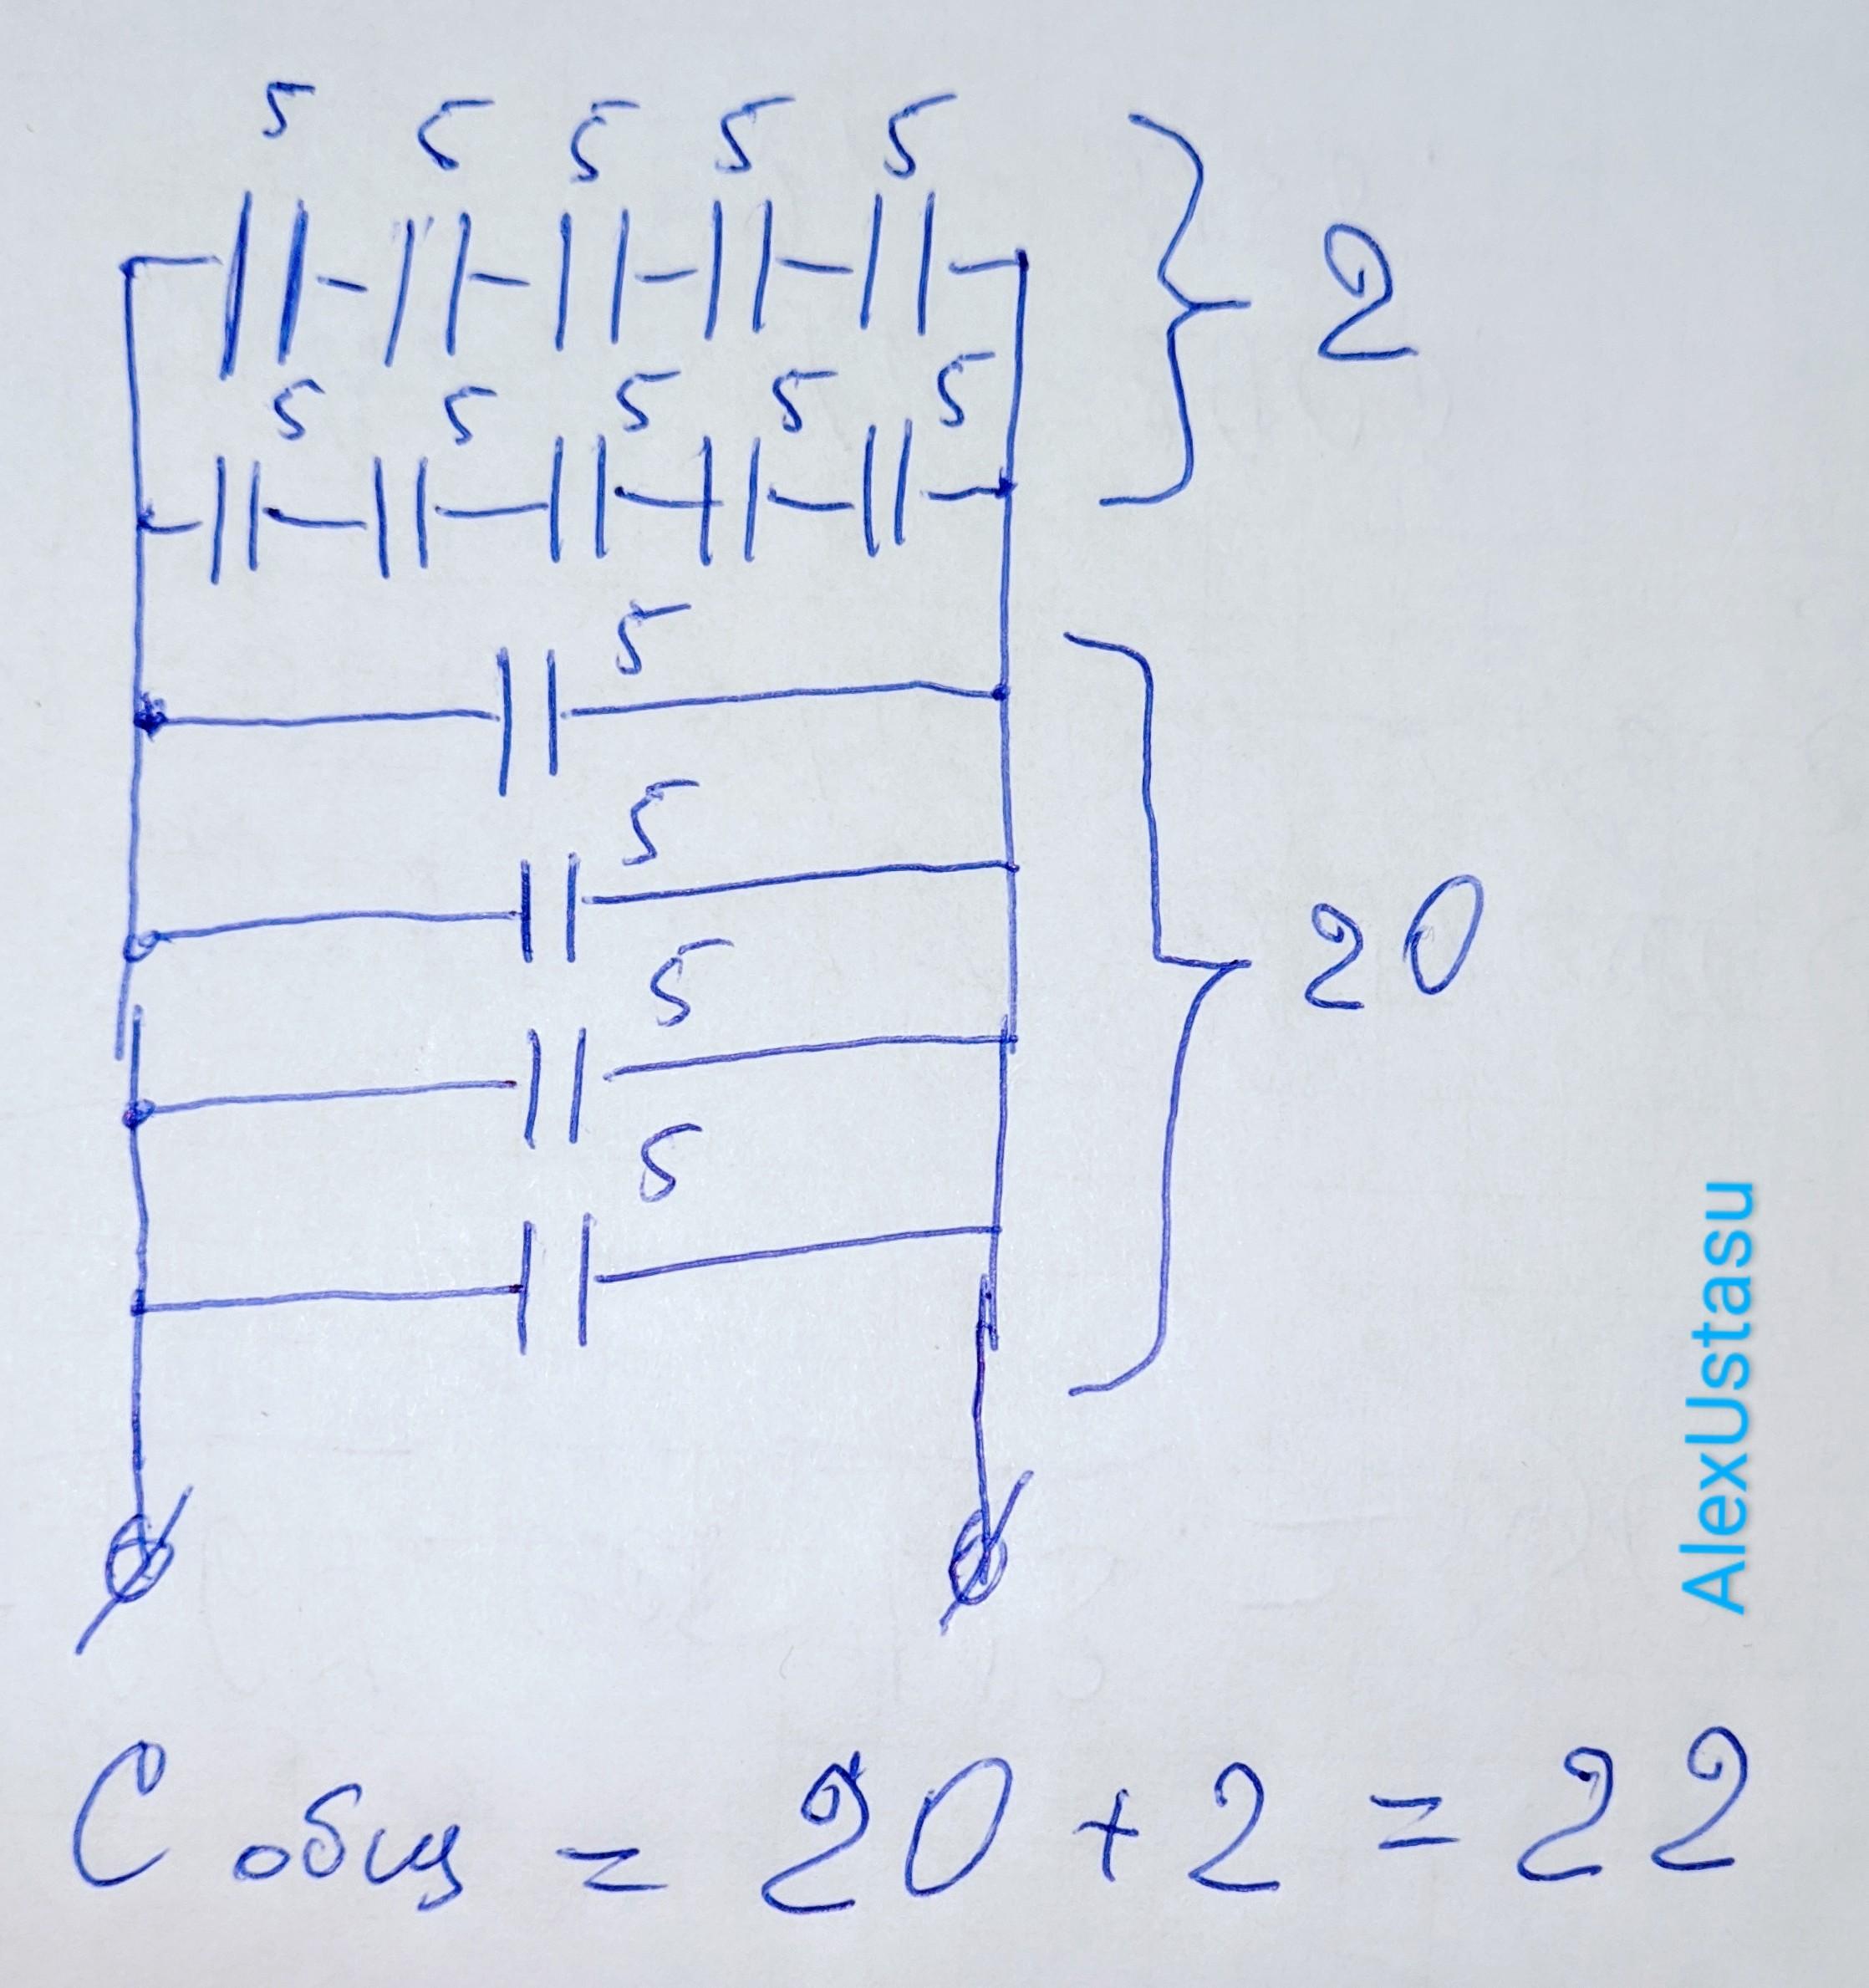 5 5 5 5 5
2
5 5 5 5 5
5
5
20
5
5
AlexUstasu
C общ = 20 + 2 = 22